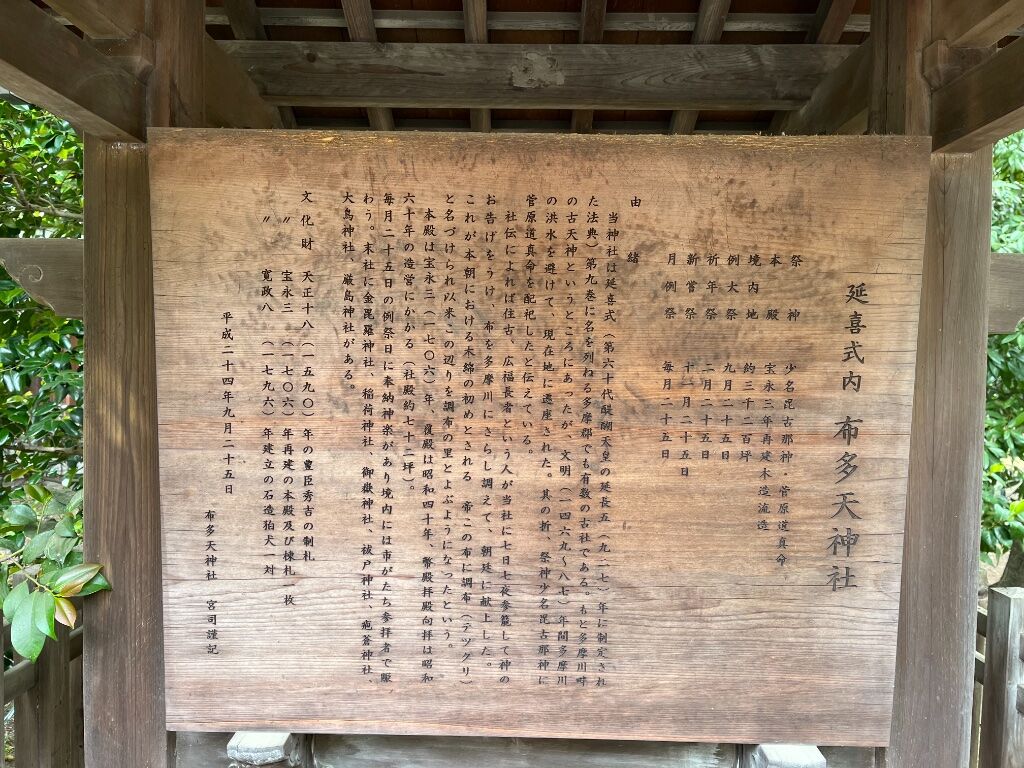 延喜式内 布多天神社
祭神 少名毘古那神・菅原道真命
本殿 宝永三年再建木造流造
境内地 約三千二百坪
例大祭 九月二十五日
祈年祭 二月二十五日
新嘗祭 十一月二十五日
月例祭 毎月二十五日
由緒
当神社は延喜式(第六十代醍醐天皇の延長五(九二七)年に制定され
た法典)第九巻に名を列ねる多摩郡でも有数の古社である。もと多摩川畔
の古天神というところにあったが、文明(一四六九〜八七)年間多摩川
の洪水を避けて、現在地に遷座された。其の折、祭神少名毘古那神に
菅原道真命を配祀したと伝えている。
社伝によれば往古、広福長者という人が当社に七日七夜参籠して神の
お告げをうけ、布を多摩川にさらし調えて、朝廷に献上した。
これが本朝における木綿の初めとされる 帝この布に調布(テツクリ)
と名づけられ以来この辺りを調布の里とよぶようになったという。
本殿は宝永三(一七〇六)年、覆殿は昭和四十年、幣殿拝殿向拝は昭和
六十年の造営にかかる(社殿約七十二坪)。
毎月二十五日の例祭日に奉納神楽があり境内には市がたち参拝者で賑
わう。末社に金毘羅神社、稲荷神社、御嶽神社、祓戸神社、疱蒼神社、
大鳥神社、厳島神社がある。
文化財 天正十八(一五九〇)年の豊臣秀吉の制札
〃 宝永三(一七〇六)年再建の本殿及び棟札一枚
〃 寛政八(一七九六)年建立の石造狛犬一対
平成二十四年九月二十五日
布多天神社 宮司謹記